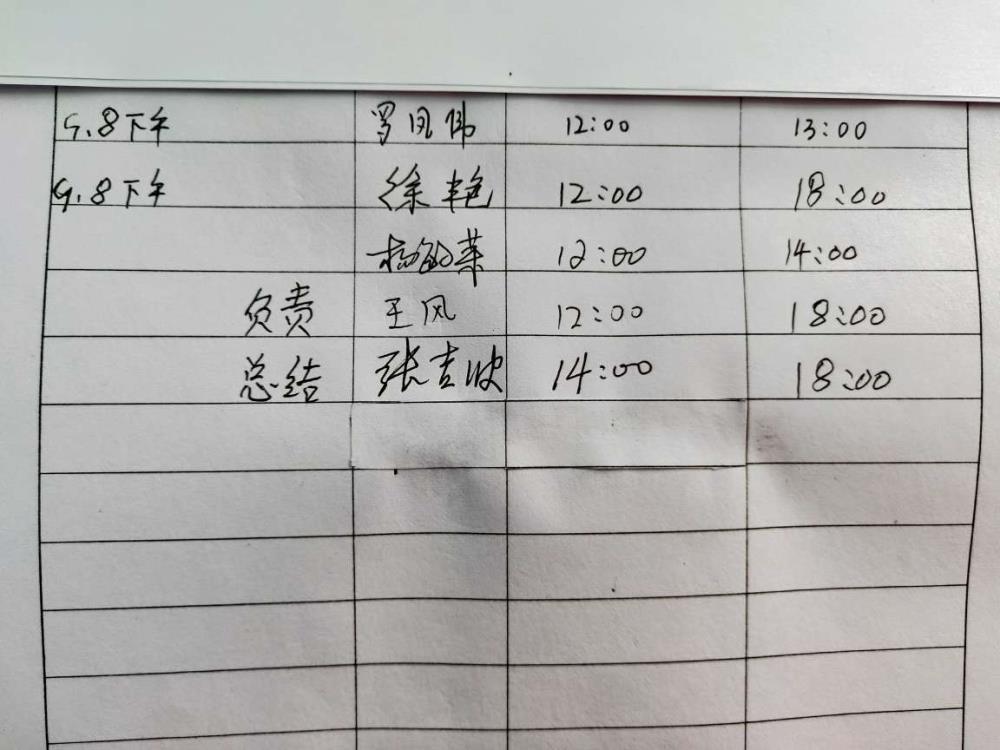 9.8下午 罗凤伟 12:00 13:00
9.8下午 徐艳 12:00 18:00
杨敏英 12:00 14:00
负责 王风 12:00 18:00
总结 张吉波 14:00 18:00